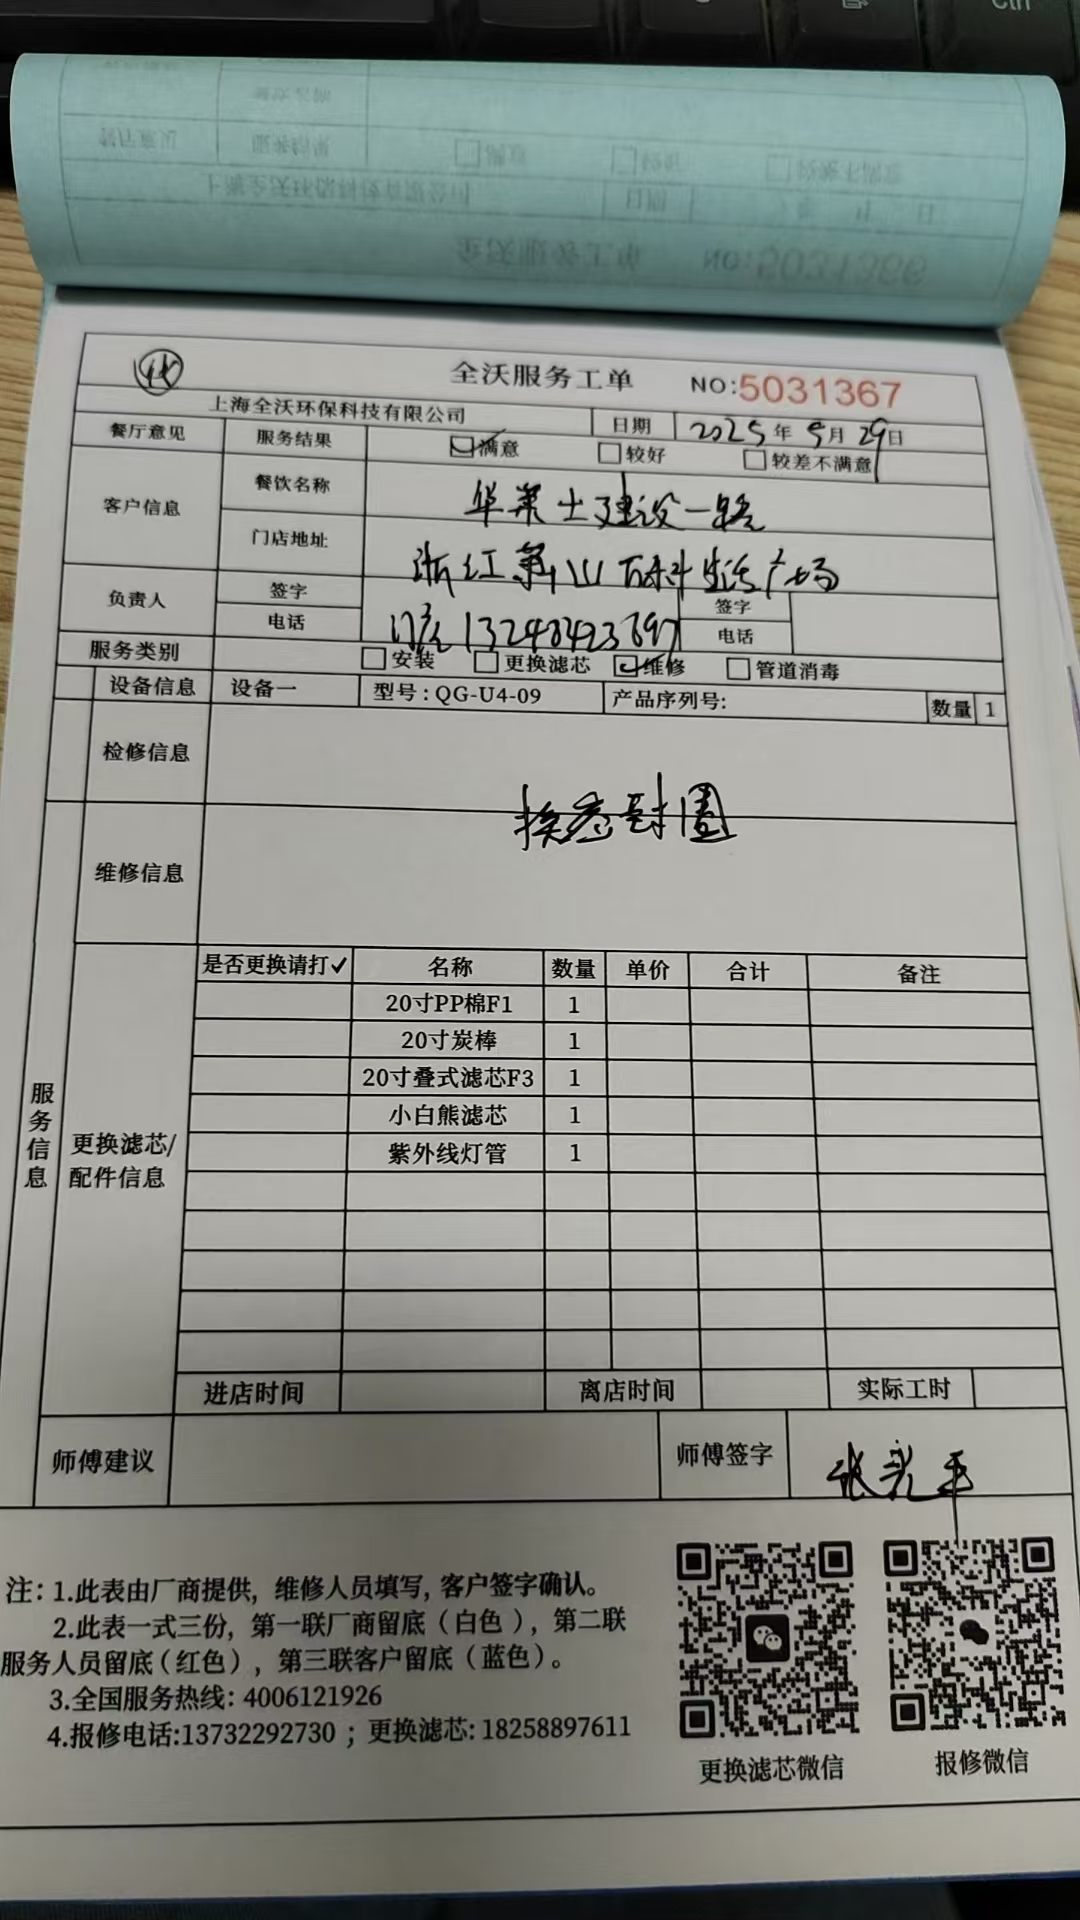 Ctrl
全沃服务工单 NO:5031366
全沃服务工单 NO:5031367
上海全沃环保科技有限公司 日期 2025年9月29日
餐厅意见 服务结果 满意 较好 较差不满意
客户信息 餐饮名称 华莱士建设一路
门店地址 浙江萧山百科生活广场
负责人 签字 签字
电话 13248493697 电话
服务类别 安装 更换滤芯 维修 管道消毒
设备信息 设备一 型号:QG-U4-09 产品序列号: 数量 1
检修信息
换密封圈
维修信息
服务信息
更换滤芯/配件信息
是否更换请打✓ 名称 数量 单价 合计 备注
20寸PP棉F1 1
20寸炭棒 1
20寸叠式滤芯F3 1
小白熊滤芯 1
紫外线灯管 1
进店时间 离店时间 实际工时
师傅建议 师傅签字
注:1.此表由厂商提供,维修人员填写,客户签字确认。
2.此表一式三份,第一联厂商留底(白色),第二联
服务人员留底(红色),第三联客户留底(蓝色)。
3.全国服务热线:4006121926
4.报修电话:13732292730;更换滤芯:18258897611
更换滤芯微信 报修微信